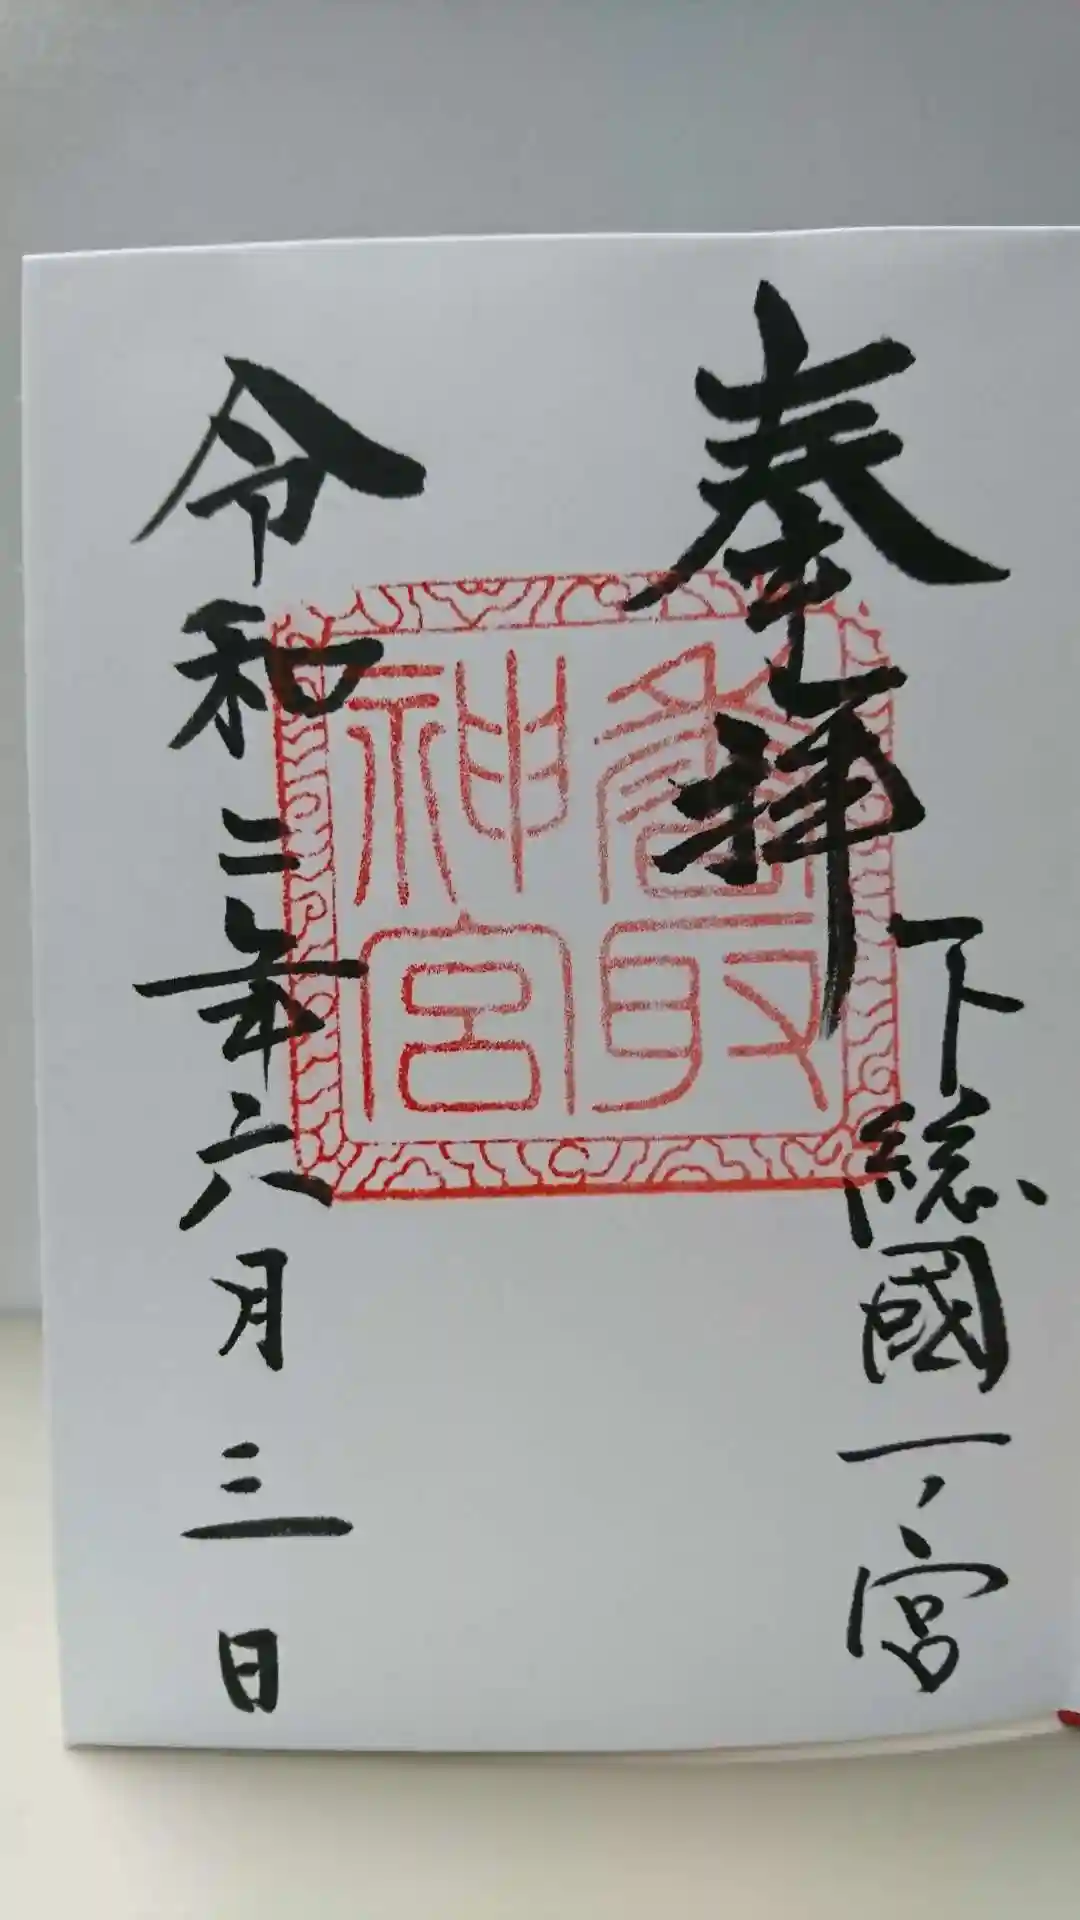 奉拝
下総國一ノ宮
香取
神宮
令和二年六月三日